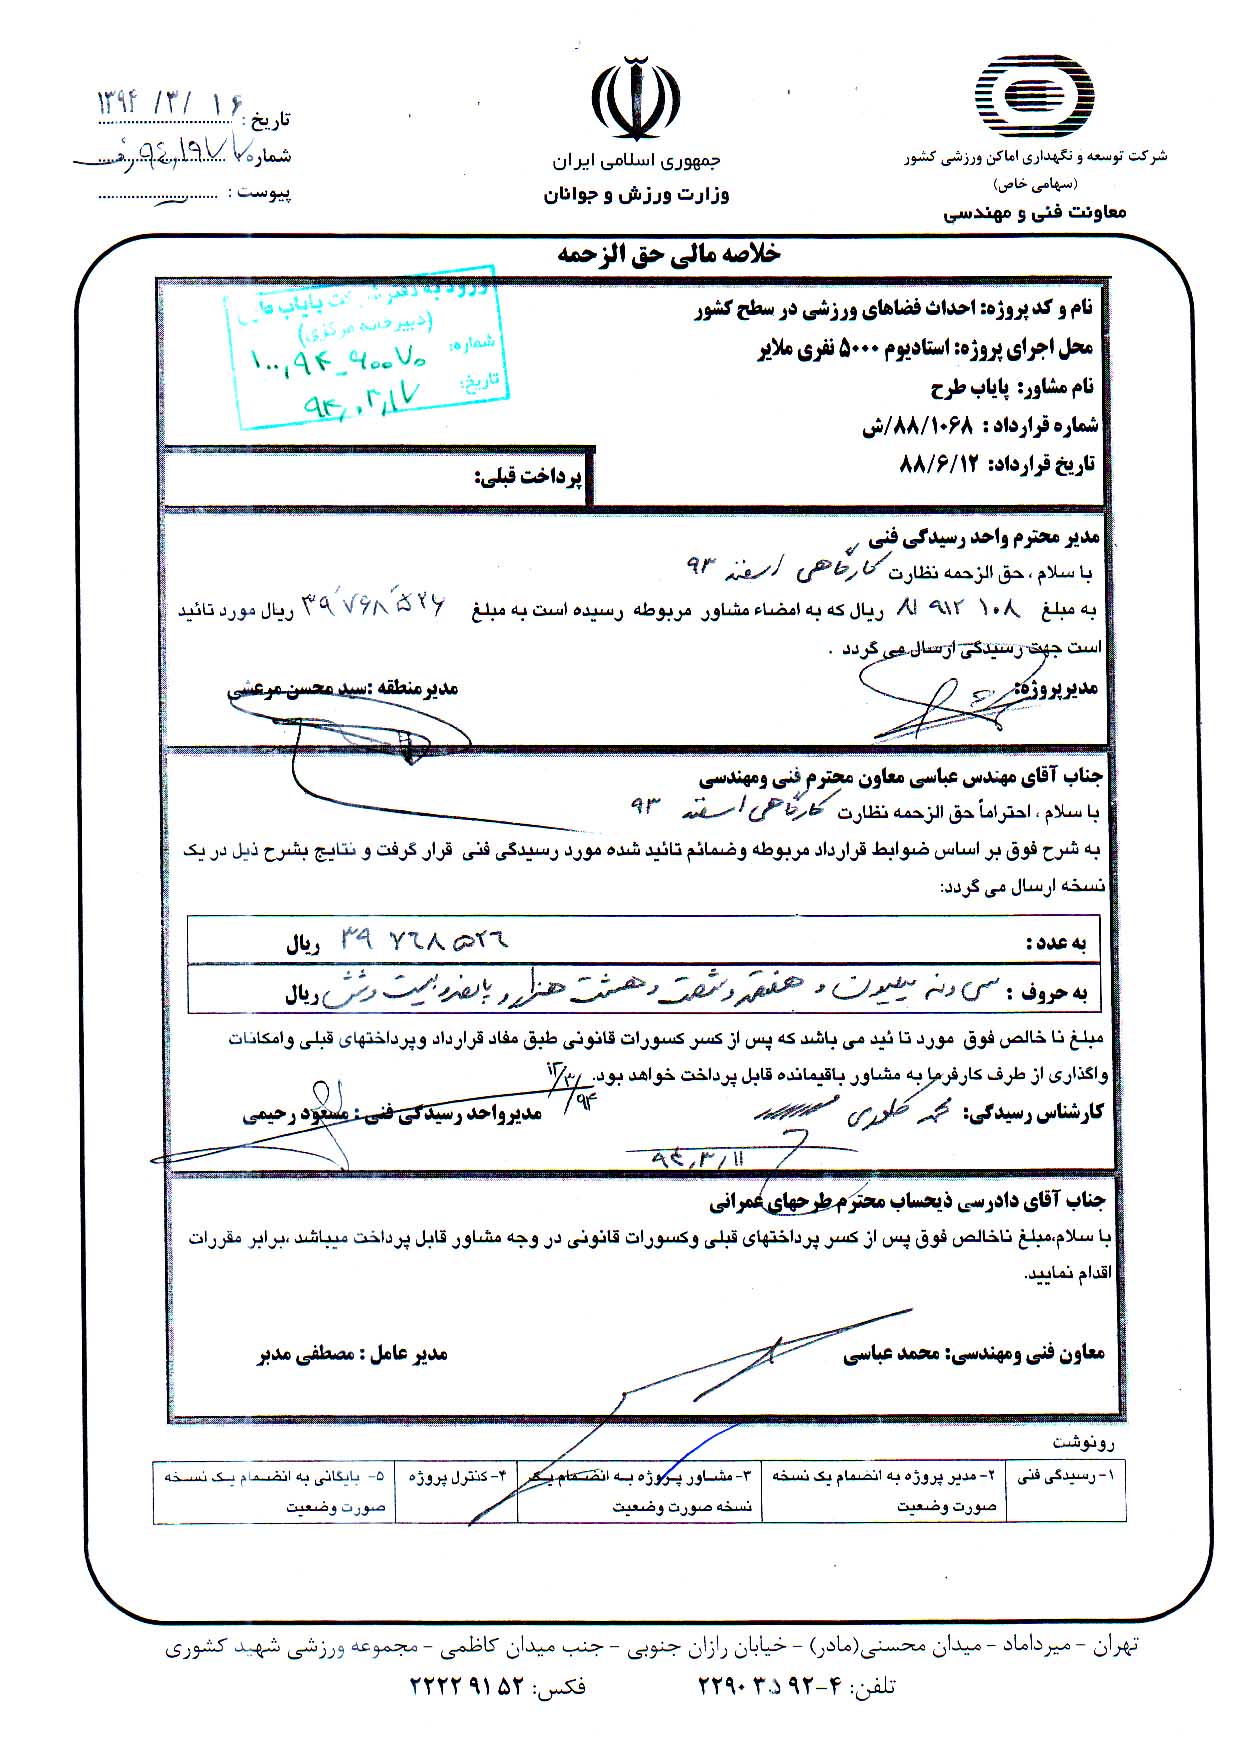 شرکت توسعه و نگهداری اماکن ورزشی کشور
(سهامی خاص)
معاونت فنی و مهندسی
جمهوری اسلامی ایران
وزارت ورزش و جوانان
تاریخ : ۱۳۹۴/۳/۱۶
شماره
پیوست :
خلاصه مالی حق الزحمه
نام و کد پروژه: احداث فضاهای ورزشی در سطح کشور
محل اجرای پروژه: استادیوم ۵۰۰۰ نفری ملایر
نام مشاور: پایاب طرح
شماره قرارداد : ۸۸/۱۰۶۸/ش
تاریخ قرارداد: ۸۸/۶/۱۲
ورود به دفتر شرکت پایاب طرح
(دبیرخانه مرکزی)
شماره: ۱۰۰,۹۴-۹۰۰۷۰
تاریخ: ۹۴,۰۳,۱۷
پرداخت قبلی:
مدیر محترم واحد رسیدگی فنی
با سلام ، حق الزحمه نظارت کارگاهی اسفند ۹۳
به مبلغ ۸۱ ۹۱۲ ۱۰۸ ریال که به امضاء مشاور مربوطه رسیده است به مبلغ ۳۹٬۷۶۸٬۵۲۶ ریال مورد تائید
است جهت رسیدگی ارسال می گردد .
مدیرپروژه:
مدیرمنطقه :سید محسن مرعشی
جناب آقای مهندس عباسی معاون محترم فنی ومهندسی
با سلام ، احتراماً حق الزحمه نظارت کارگاهی اسفند ۹۳
به شرح فوق بر اساس ضوابط قرارداد مربوطه وضمائم تائید شده مورد رسیدگی فنی قرار گرفت و نتایج بشرح ذیل در یک
نسخه ارسال می گردد:
به عدد : ۳۹ ۷۶۸ ۵۲۶ ریال
به حروف : سی و نه میلیون و هفتصد و شصت و هشت هزار و پانصد و بیست و شش ریال
مبلغ نا خالص فوق مورد تا ئید می باشد که پس از کسر کسورات قانونی طبق مفاد قرارداد وپرداختهای قبلی وامکانات
واگذاری از طرف کارفرما به مشاور باقیمانده قابل پرداخت خواهد بود.
۹۴/۳/۱۲
کارشناس رسیدگی: محمد
مدیرواحد رسیدگی فنی : مسعود رحیمی
۹۴,۳/۱۱
جناب آقای دادرسی ذیحساب محترم طرحهای عمرانی
با سلام،مبلغ ناخالص فوق پس از کسر پرداختهای قبلی وکسورات قانونی در وجه مشاور قابل پرداخت میباشد ،برابر مقررات
اقدام نمایید.
معاون فنی ومهندسی: محمد عباسی
مدیر عامل : مصطفی مدبر
رونوشت
۱- رسیدگی فنی
۲- مدیر پروژه به انضمام یک نسخه
صورت وضعیت
۳- مشاور پروژه به انضمام یک
نسخه صورت وضعیت
۴- کنترل پروژه
۵- بایگانی به انضمام یک نسخه
صورت وضعیت
تهران - میرداماد - میدان محسنی(مادر) - خیابان رازان جنوبی - جنب میدان کاظمی - مجموعه ورزشی شهید کشوری
تلفن: ۴-۲۲۹۰۳۵۹۲ فکس: ۲۲۲۲۹۱۵۲